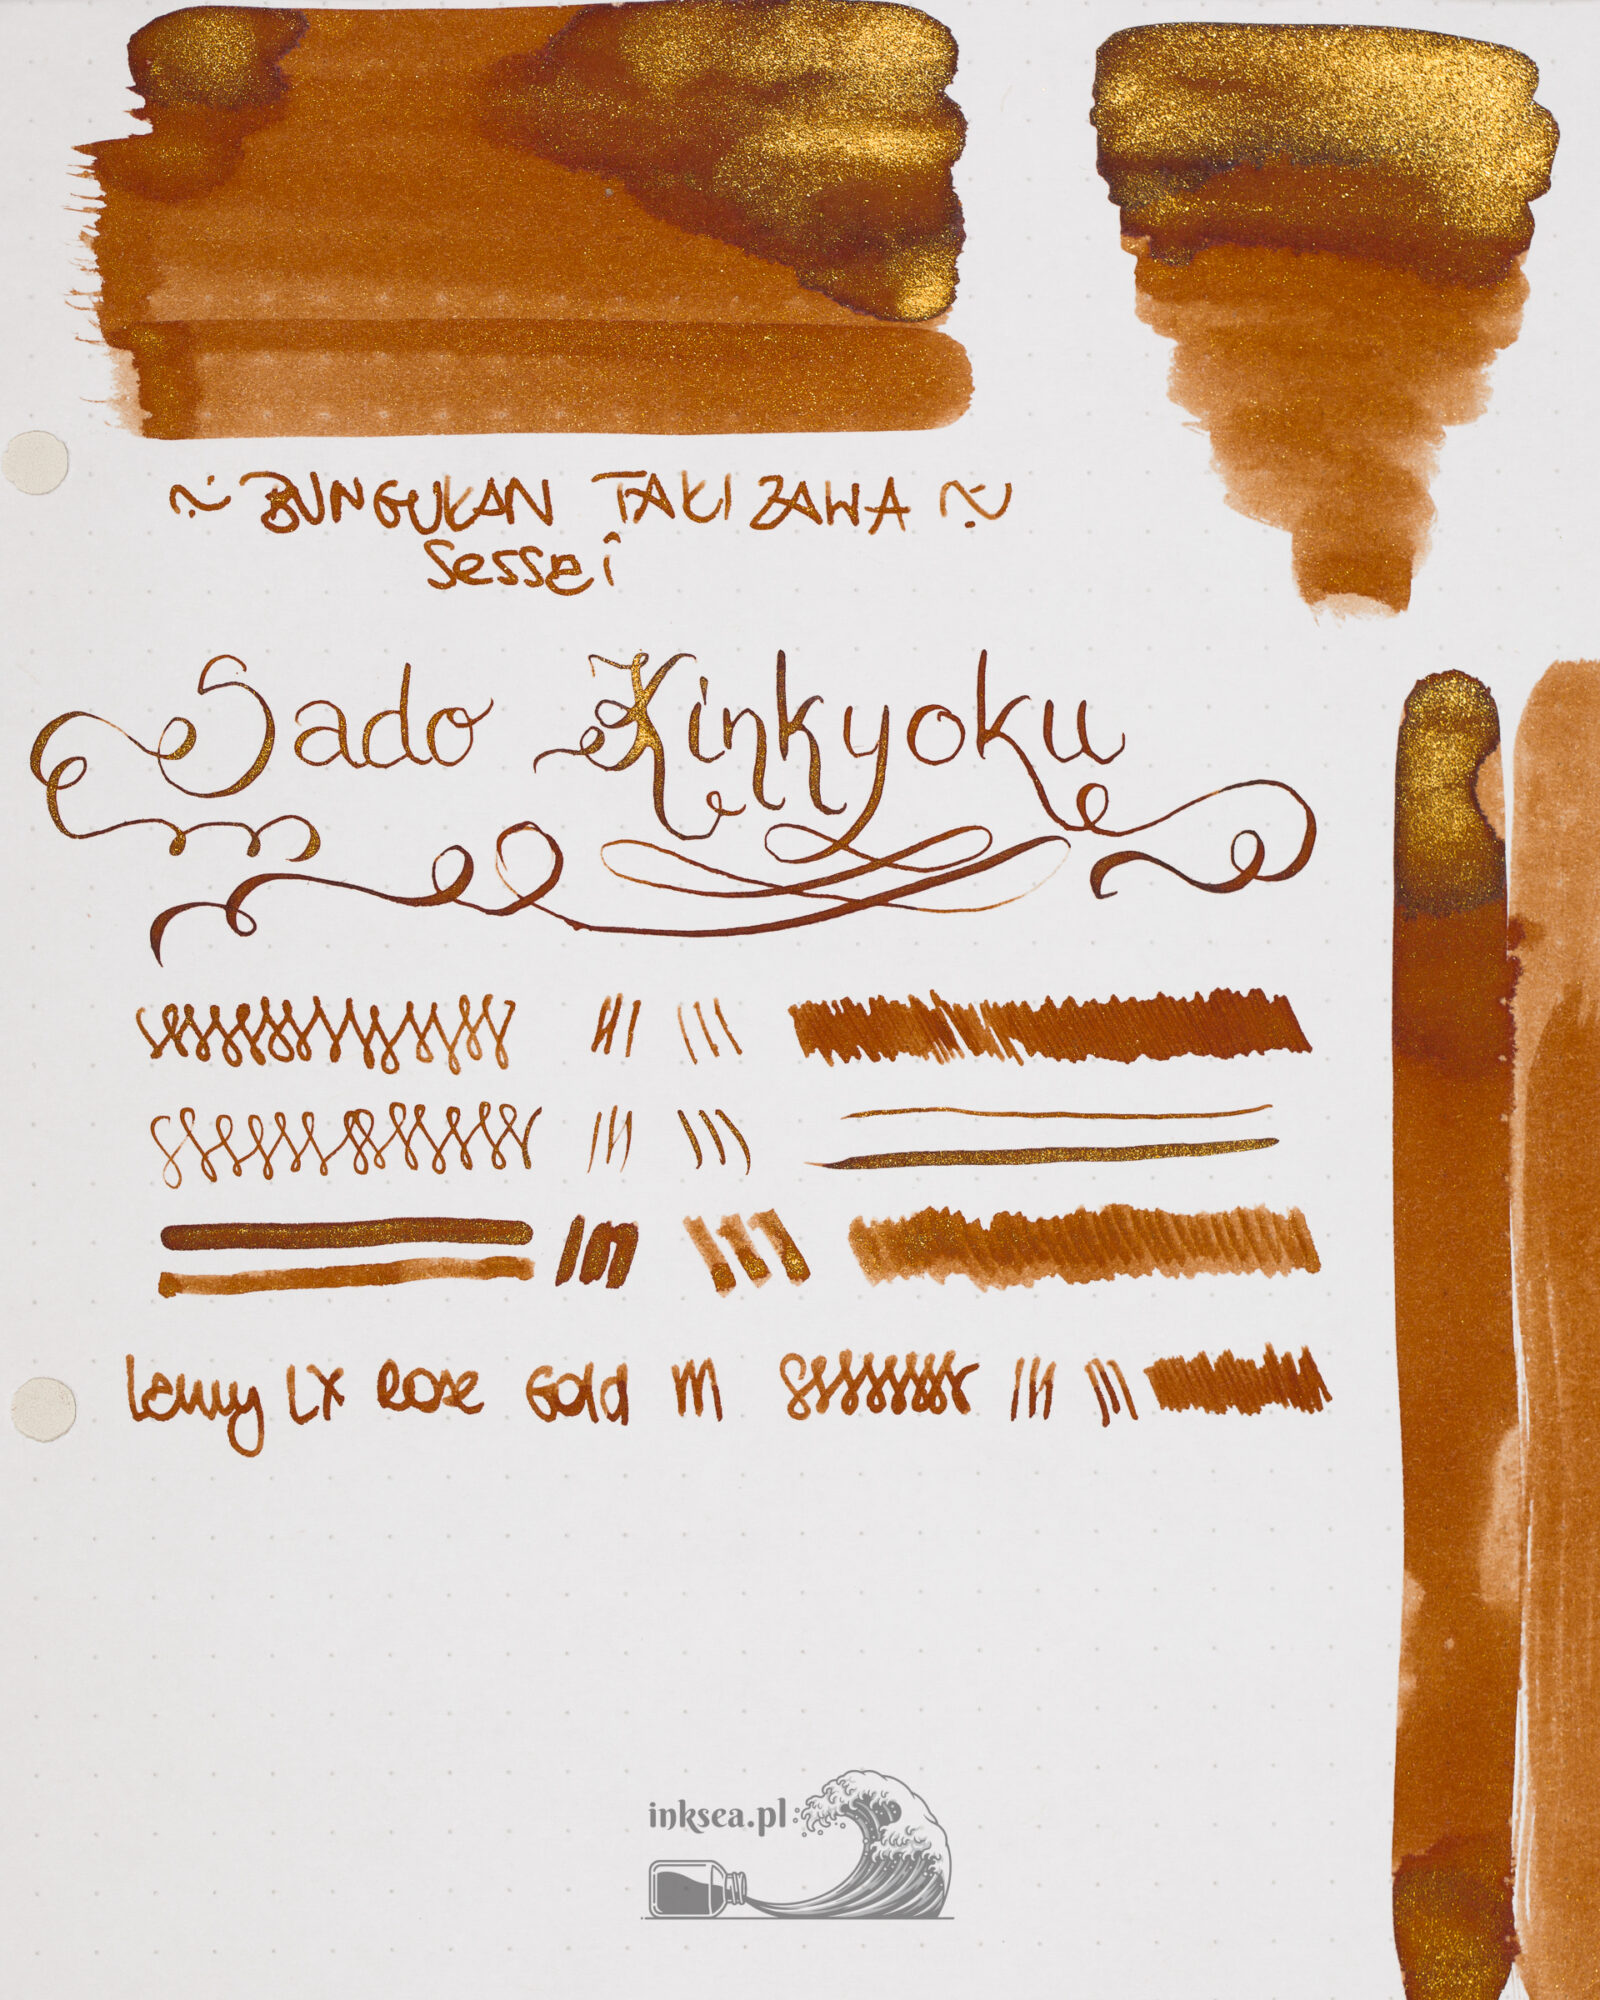 ~ BUNGUKAN TAKIZAWA ~
Sessei
Sado Kinkyoku
Lamy LX Rose Gold M
inksea.pl